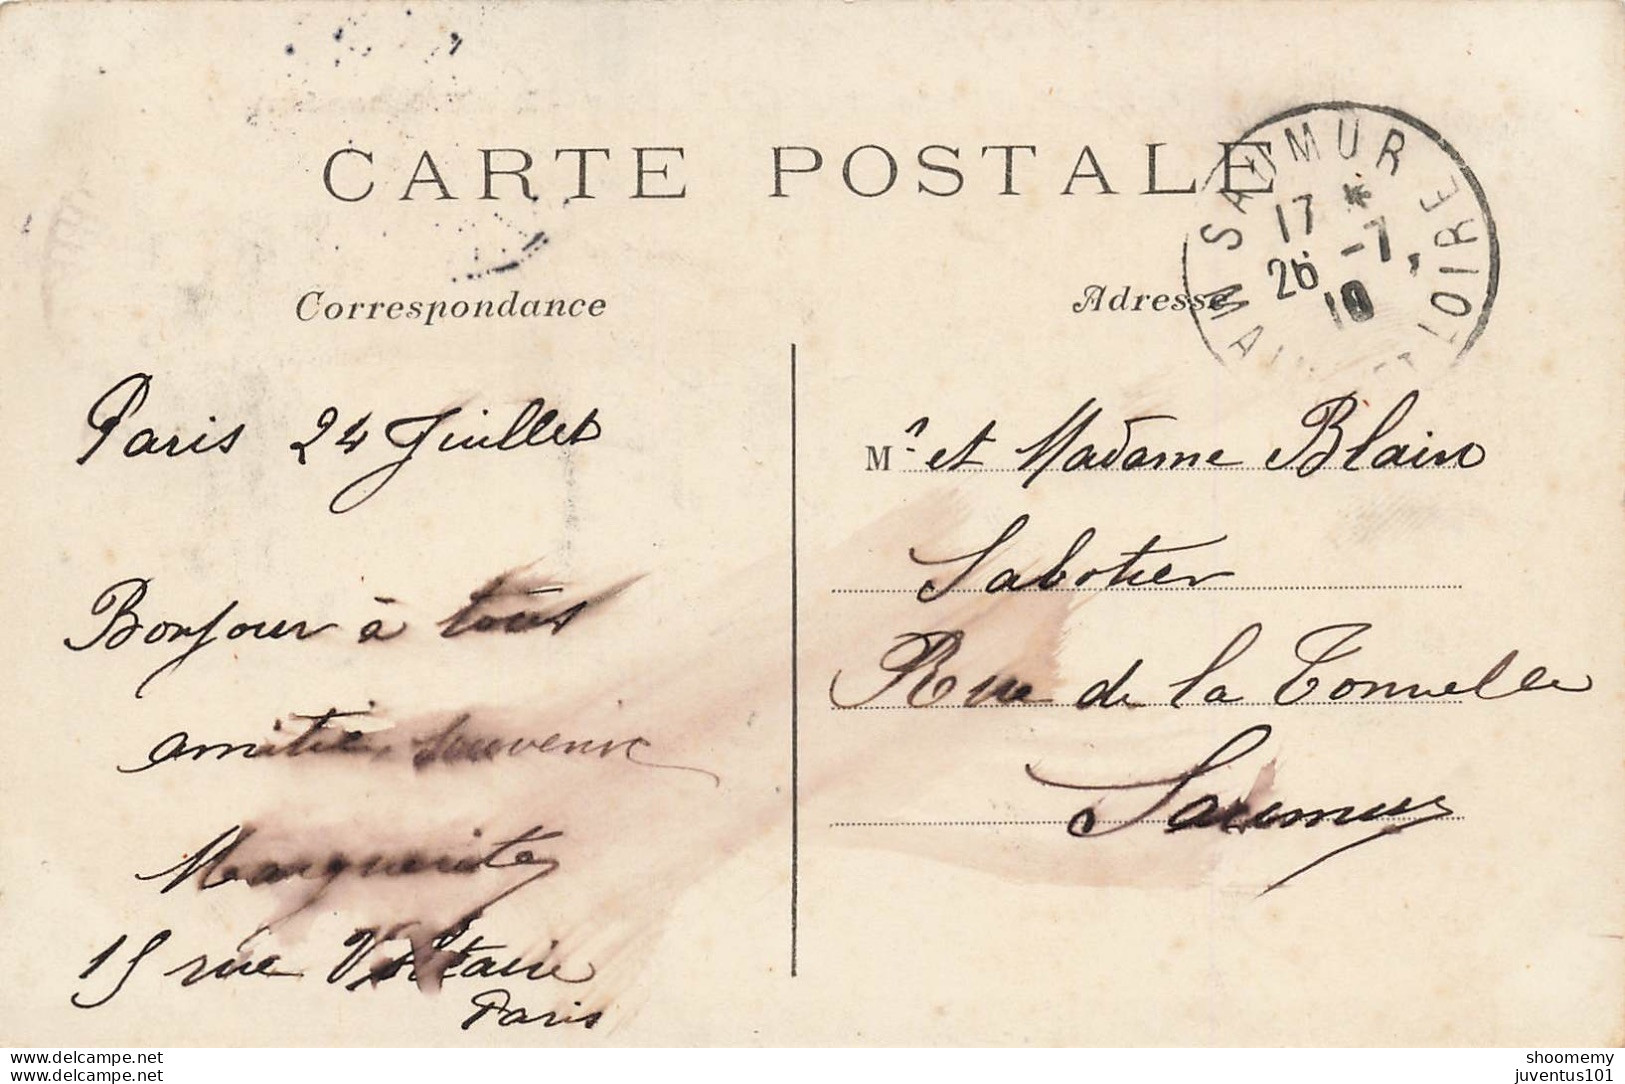 CARTE POSTALE
SAUMUR
MAINE ET LOIRE
17 *
26 -7
10
Correspondance
Adresse
Paris 24 Juillet
Bonjour à tous
amitié, souvenir
Marguerite
15 rue Voltaire
Paris
Mr et Madame Blain
Sabotier
Rue de la Tonnelle
Saumur
www.delcampe.net
www.delcampe.net
shoomemy
juventus101